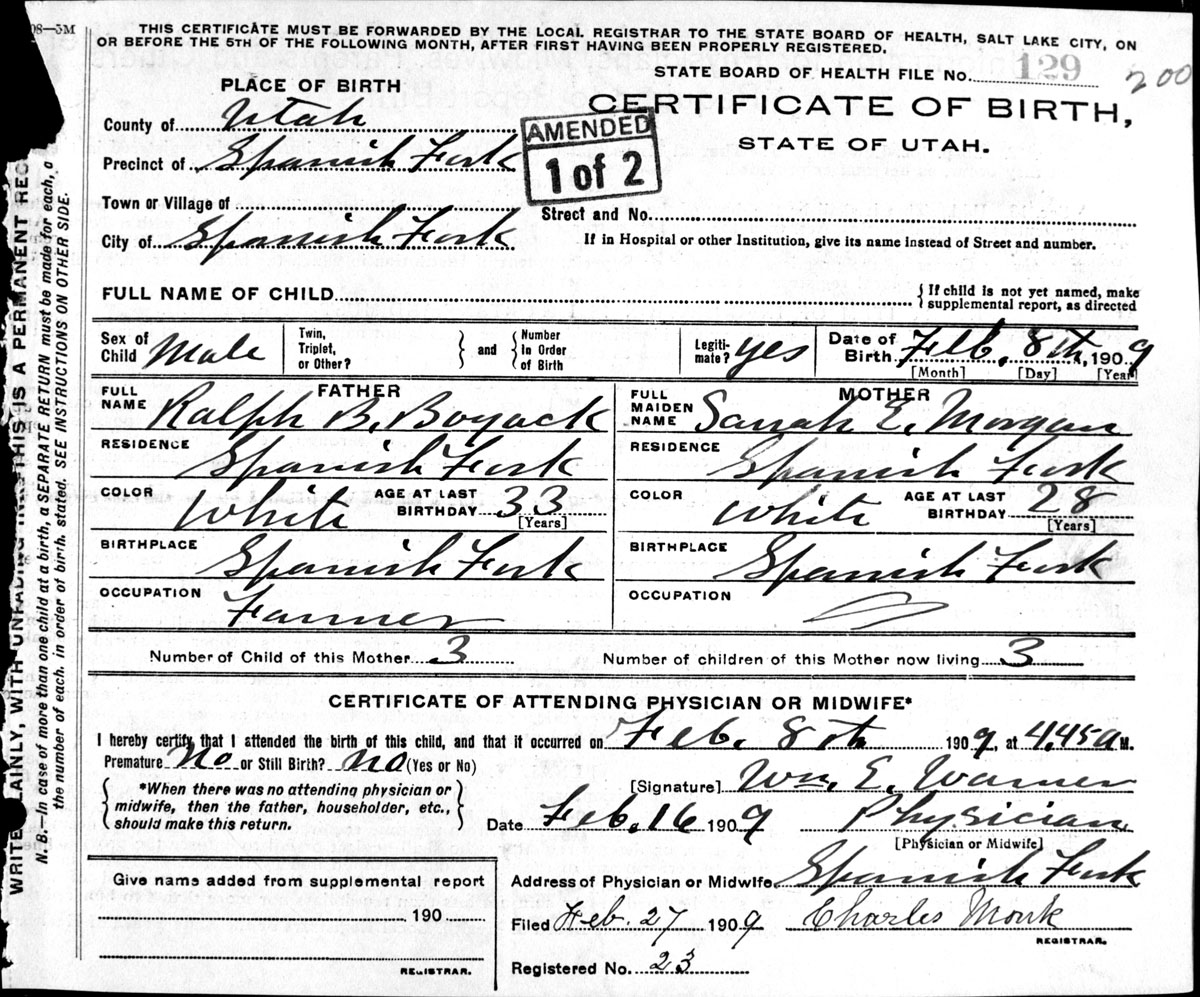 08—3M
THIS CERTIFICATE MUST BE FORWARDED BY THE LOCAL REGISTRAR TO THE STATE BOARD OF HEALTH, SALT LAKE CITY, ON
OR BEFORE THE 5TH OF THE FOLLOWING MONTH, AFTER FIRST HAVING BEEN PROPERLY REGISTERED.
STATE BOARD OF HEALTH FILE No. 129
200
PLACE OF BIRTH
CERTIFICATE OF BIRTH,
STATE OF UTAH.
AMENDED
1 of 2
County of Utah
Precinct of Spanish Fork
Town or Village of
Street and No.
City of Spanish Fork
If in Hospital or other Institution, give its name instead of Street and number.
FULL NAME OF CHILD
{ If child is not yet named, make
supplemental report, as directed
Sex of Child Male
Twin, Triplet, or Other? } and { Number In Order of Birth
Legiti- mate? yes
Date of Birth Feb. 8th, 1909
[Month] [Day] [Year]
FATHER
FULL NAME Ralph B. Boyack
RESIDENCE Spanish Fork
COLOR White AGE AT LAST BIRTHDAY 33 [Years]
BIRTHPLACE Spanish Fork
OCCUPATION Farmer
MOTHER
FULL MAIDEN NAME Sarah E. Morgan
RESIDENCE Spanish Fork
COLOR White AGE AT LAST BIRTHDAY 28 [Years]
BIRTHPLACE Spanish Fork
OCCUPATION
Number of Child of this Mother 3 Number of children of this Mother now living 3
CERTIFICATE OF ATTENDING PHYSICIAN OR MIDWIFE*
I hereby certify that I attended the birth of this child, and that it occurred on Feb. 8th 1909, at 4.45 a M.
Premature No or Still Birth? No (Yes or No)
{ *When there was no attending physician or
midwife, then the father, householder, etc.,
should make this return. }
[Signature] Wm. E. Warner
Date Feb. 16 1909 Physician
[Physician or Midwife]
Address of Physician or Midwife Spanish Fork
Filed Feb. 27 1909 Charles Monk
REGISTRAR.
Registered No. 23
Give name added from supplemental report
190
REGISTRAR.
WRITE PLAINLY, WITH UNFADING INK—THIS IS A PERMANENT REC
N.B.—In case of more than one child at a birth, a SEPARATE RETURN must be made for each, a
the number of each, in order of birth, stated. SEE INSTRUCTIONS ON OTHER SIDE.